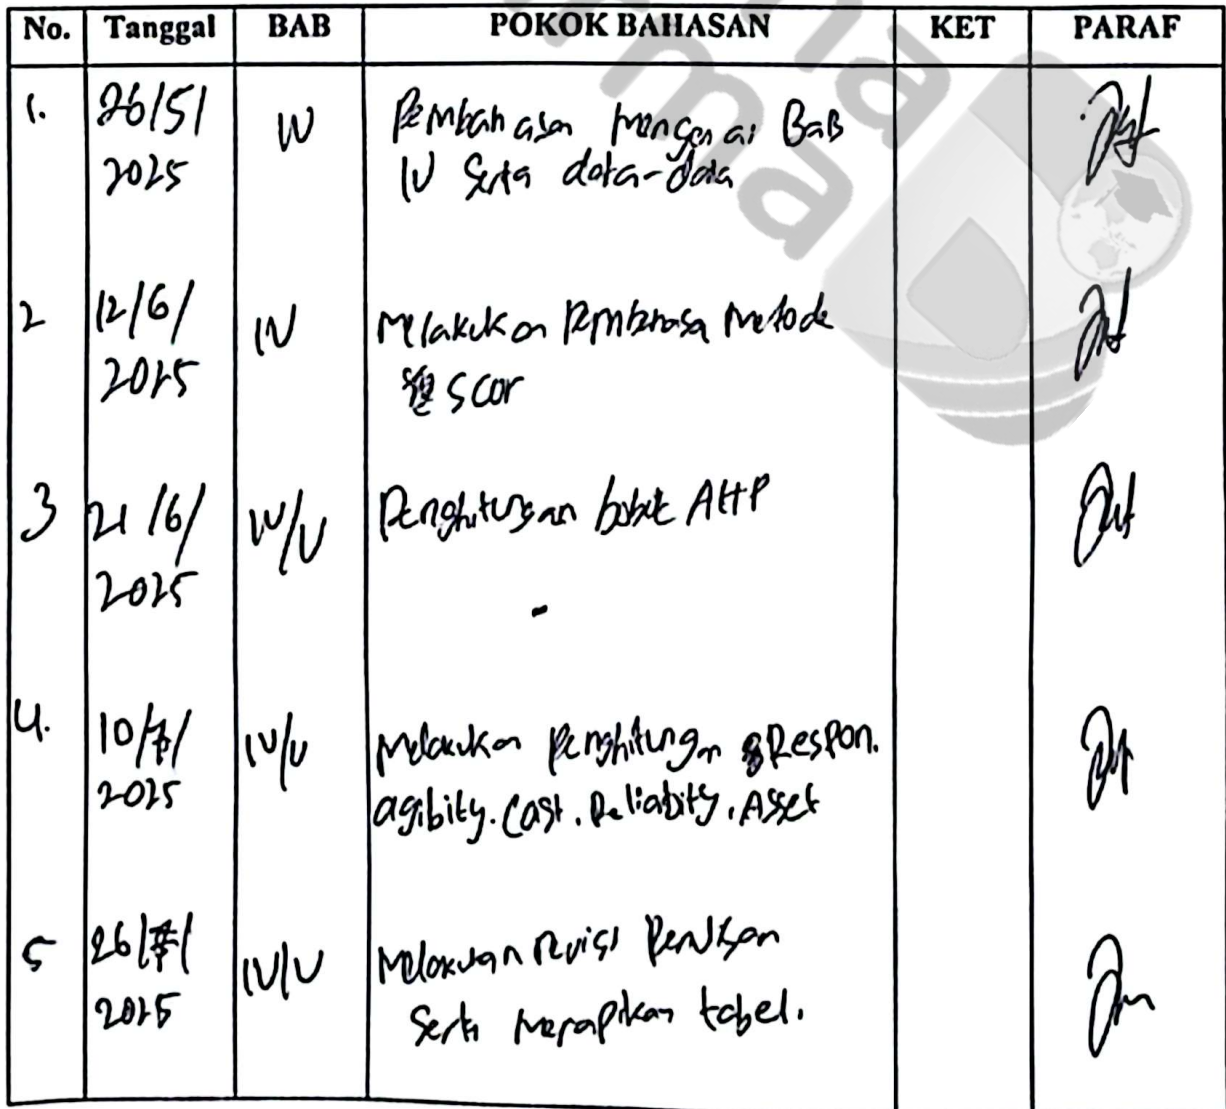 No. Tanggal BAB POKOK BAHASAN KET PARAF
1. 26/5/ IV Pembahasan mengenai Bab
2025 IV serta data-data
2 12/6/ IV Melakukan Pembahasa Metode
2025 SCOR
3 21/6/ IV/V Penghitungan bobot AHP
2025 -
4. 10/7/ IV/V Melakukan Penghitungan Respon.
2025 agibility. Cost. Reliabity. Asset
5 26/7/ IV/V Melakukan Revisi Penulisan
2025 serta merapikan tabel.